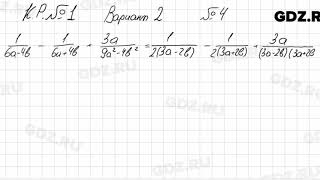 К.Р. №1 Вариант 2 №4 GDZ.RU
1/(6a-4b) - 1/(6a+4b) + 3a/(9a²-4b²) = 1/(2(3a-2b)) - 1/(2(3a+2b)) + 3a/((3a-2b)(3a+2b
GDZ.RU
GDZ.RU
GDZ.RU